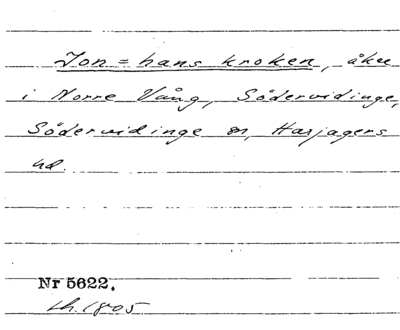 Jon=hans kroken, åker
i Norre Vång, Södervidinge,
Södervidinge sn, Harjagers
hd.
Nr 5622.
Lh. 1805